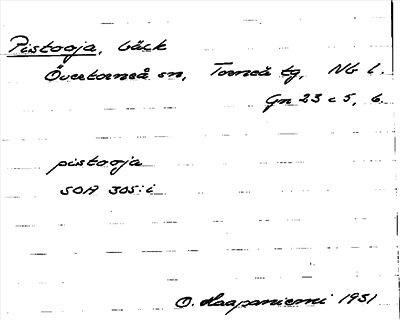 Pistooja, bäck
Övertorneå sn, Torneå tg, Nb l.
Gn 23 c 5, 6.
pistooja
SOA 305:i
O. Haapaniemi 1931